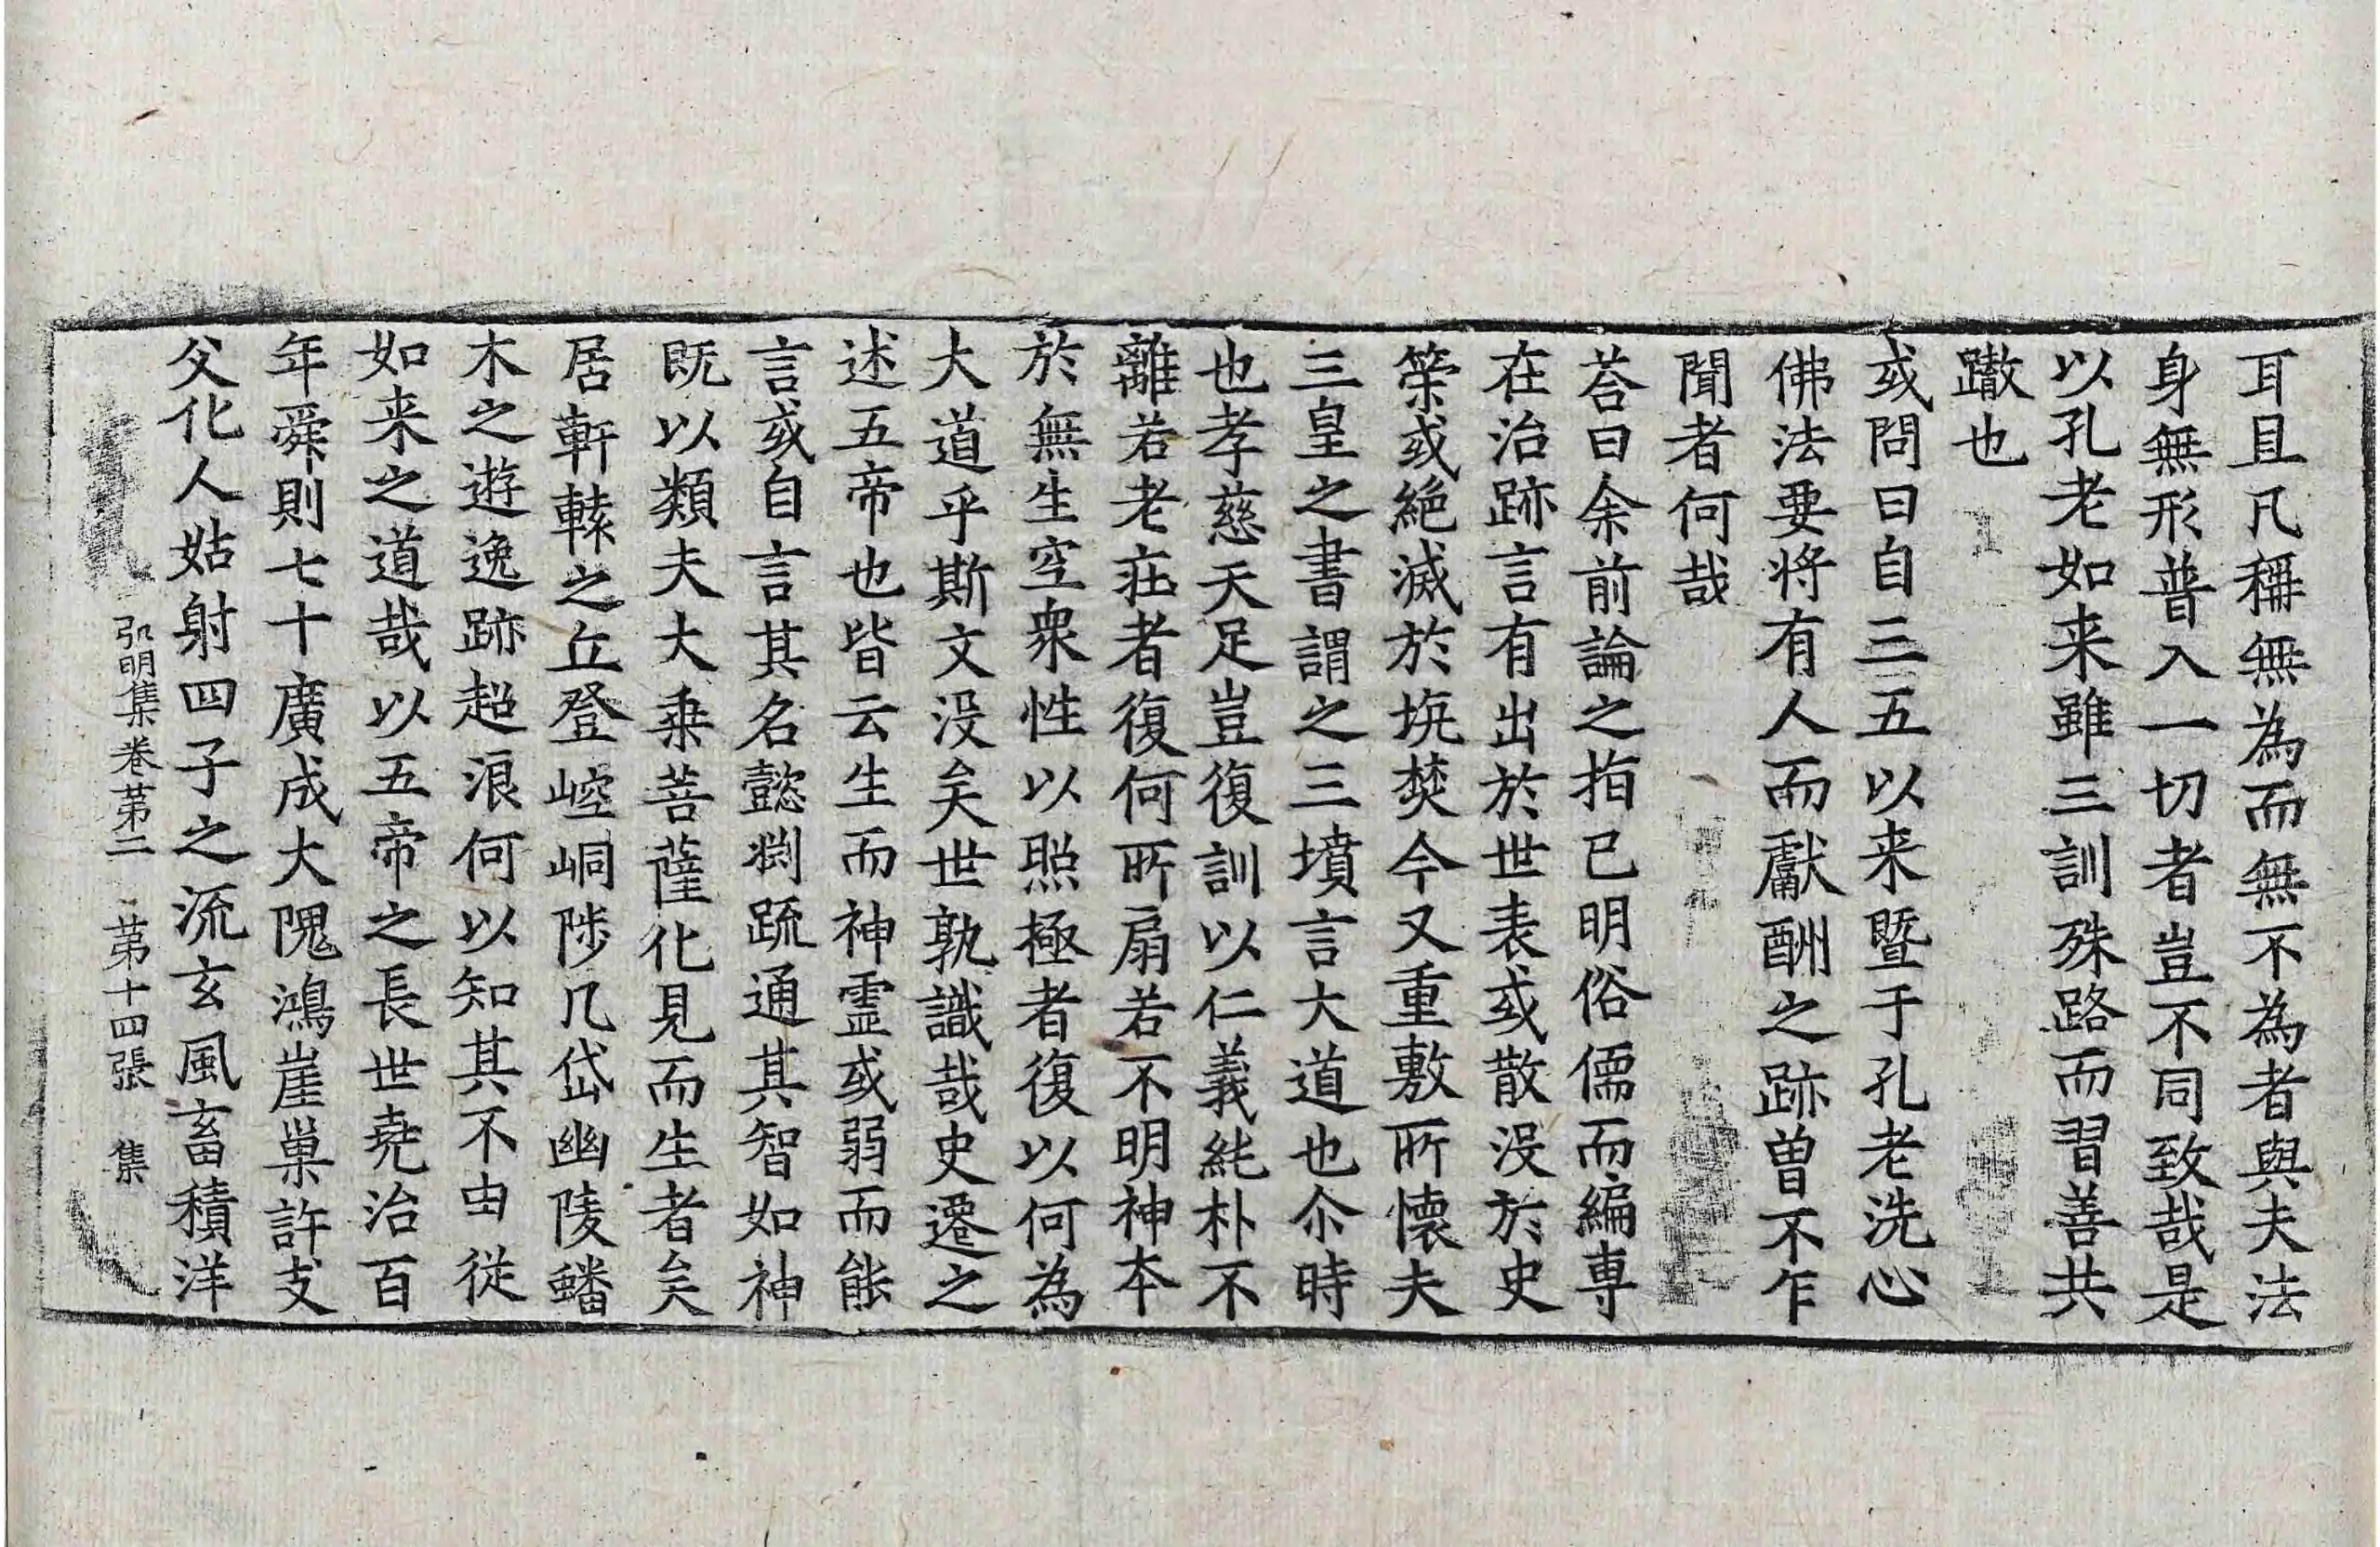 耳且凡稱無為而無不為者與夫法
身無形普入一切者豈不同致哉是
以孔老如来雖三訓殊路而習善共
轍也
或問曰自三五以来暨于孔老洗心
佛法要将有人而獻酬之跡曾不乍
聞者何哉
荅曰余前論之指已明俗儒而編専
在治跡言有出於世表或散没於史
策或絕滅於坑焚今又重敷所懐夫
三皇之書謂之三墳言大道也尒時
也孝慈天足豈復訓以仁義純朴不
離若老莊者復何所扇若不明神本
於無生空衆性以照極者復以何為
大道乎斯文没矣世孰識哉史遷之
述五帝也皆云生而神霊或弱而能
言或自言其名懿渕疏通其智如神
既以類夫大乗菩薩化見而生者矣
居軒轅之丘登崆峒陟几岱幽陵蟠
木之遊逸跡超浪何以知其不由従
如来之道哉以五帝之長世尭治百
年舜則七十廣成大隗鴻崖巣許支
父化人姑射四子之流玄風畜積洋
弘明集卷第二 第十四張 集